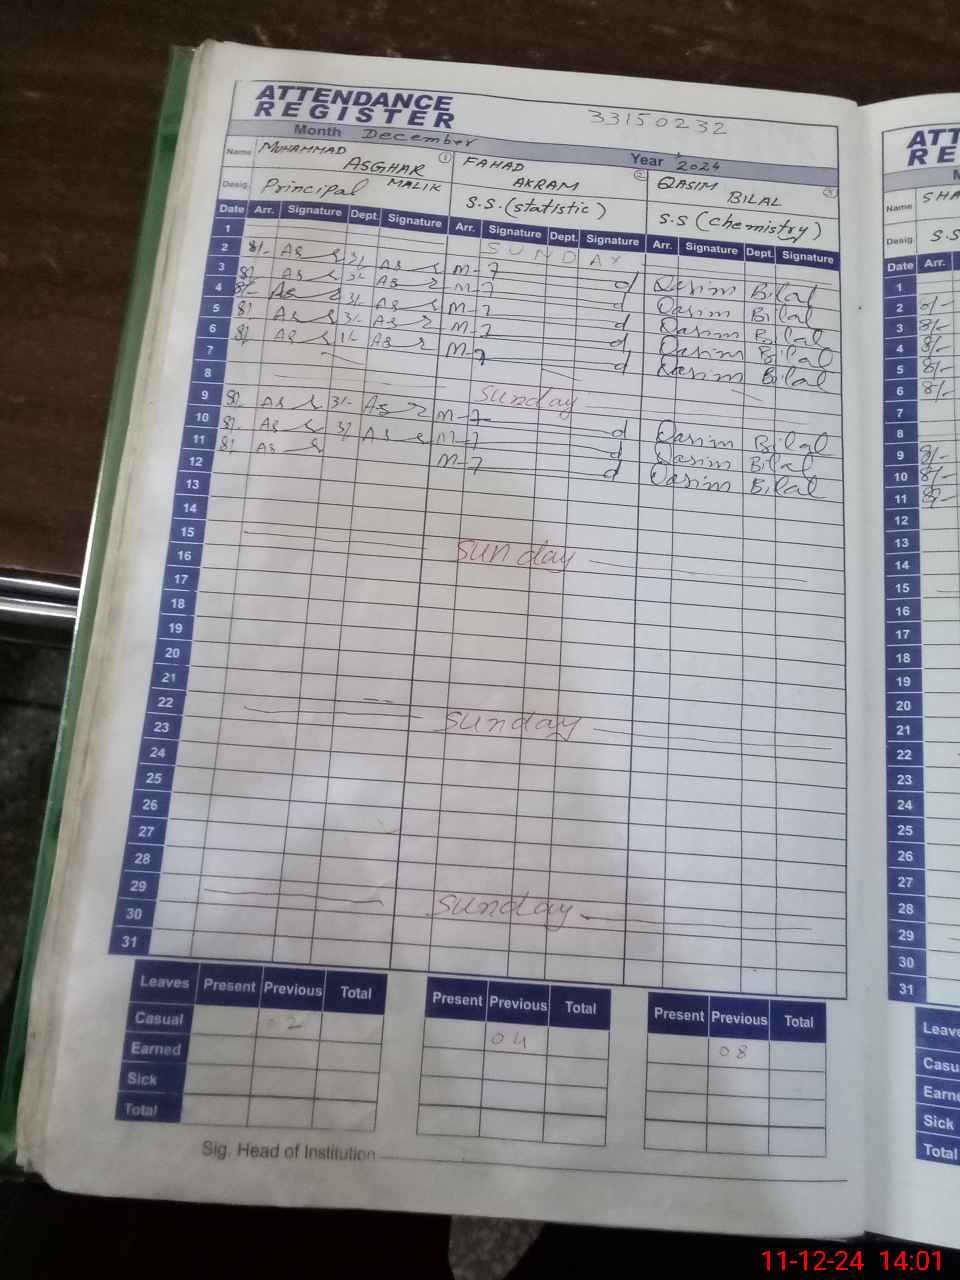 ATTENDANCE
REGISTER
33150232
Month December Year 2024
Name MUHAMMAD ASGHAR MALIK 1 FAHAD AKRAM 2 QASIM BILAL 3
Desig. Principal S.S.(statistic) S.S (chemistry)
Date Arr. Signature Dept. Signature Arr. Signature Dept. Signature Arr. Signature Dept. Signature
1 SUNDAY
2 8/- 3/- M-7 Qasim Bilal
3 8/- 3/- M-7 Qasim Bilal
4 8/- 3/- M-7 Qasim Bilal
5 8/- 3/- M-7 Qasim Bilal
6 8/- 1/- M-7 Qasim Bilal
7
8 sunday
9 8/- 3/- M-7 Qasim Bilal
10 8/- 3/- M-7 Qasim Bilal
11 8/- M-7 Qasim Bilal
12
13
14
15 sunday
16
17
18
19
20
21
22 sunday
23
24
25
26
27
28
29 sunday
30
31
Leaves Present Previous Total Present Previous Total Present Previous Total
Casual 02 04 08
Earned
Sick
Total
Sig. Head of Institution
ATT
RE
Name SHA
Desig. S.S
Date Arr.
1
2 8/-
3 8/-
4 8/-
5 8/-
6 8/-
7
8
9 8/-
10 8/-
11 8/-
12
13
14
15
16
17
18
19
20
21
22
23
24
25
26
27
28
29
30
31
Leave
Casu
Earne
Sick
Total
11-12-24 14:01